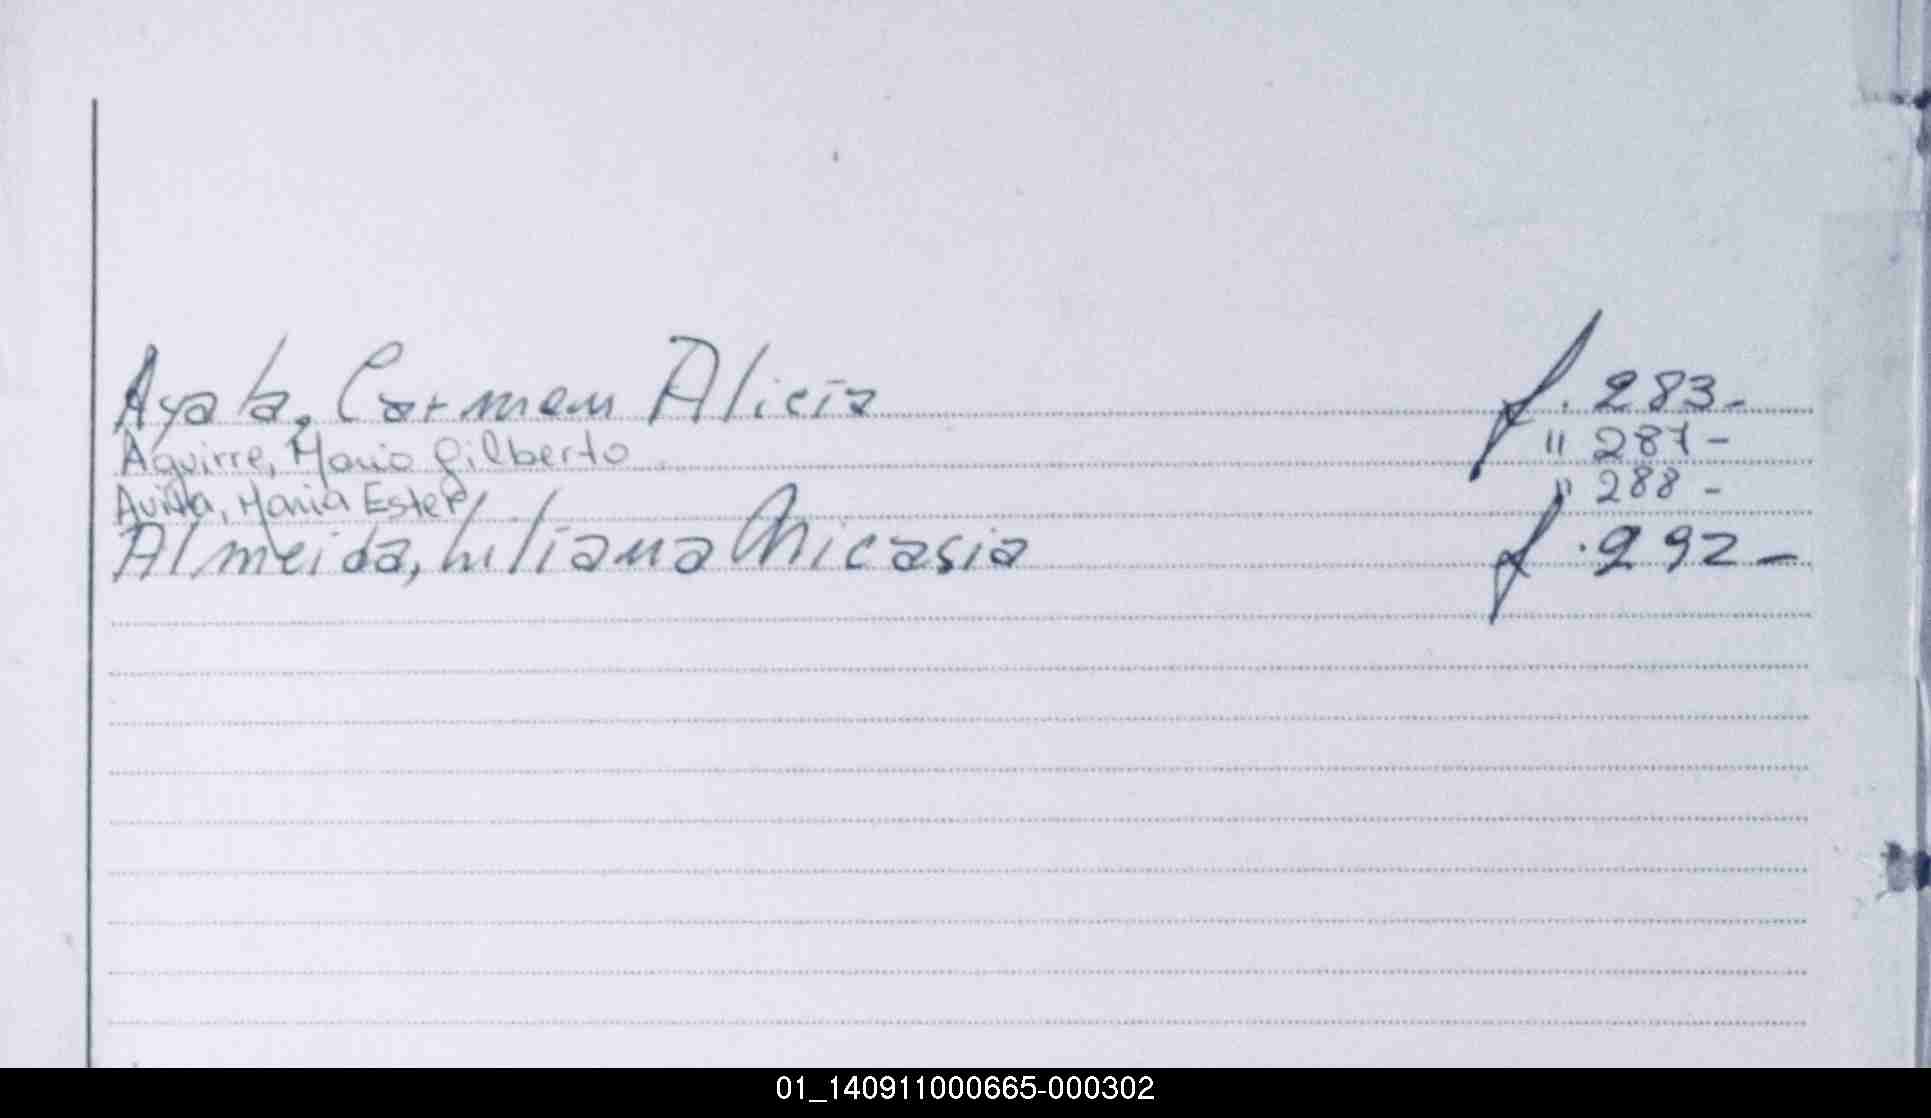 Ayala, Carmen Alicia f. 283-
Aguirre, Mario Gilberto " 287-
Avila, Maria Ester " 288-
Almeida, Juliana Nicasia f. 292-
01_140911000665-000302